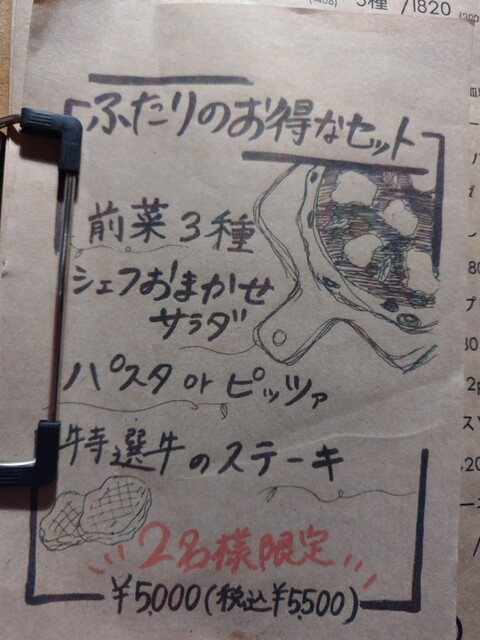 3種 /1820
ふたりのお得なセット
前菜3種
シェフおまかせ
サラダ
パスタ or ピッツァ
特選牛のステーキ
2名様限定
¥5,000(税込¥5,500)